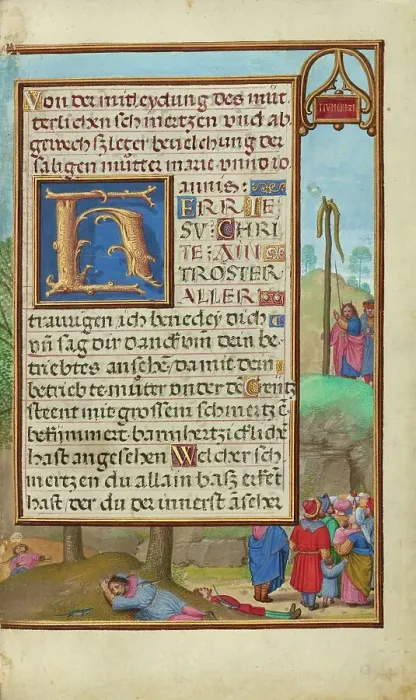 Von der mitleydung des müt
terlichen schmertzen vnd ab
gewechszleter beuelchung der
saligen mütter marie vnnd io
annis:
HERR IE
SV: CHRI
TE: AIN
TROSTER
ALLER
traurigen ich benedey dich
vñ sag dir danck vm dein be
triebtes ansehē / da mit dein
betriebte müter vnder dē Creutz
steent mit grossem schmertzē
bekümmert barmhertzicklichē
hast angesehen Welcher sch
mertzen du allain basz erkēt
hast / der du der innerst āseher
NVMERI 21